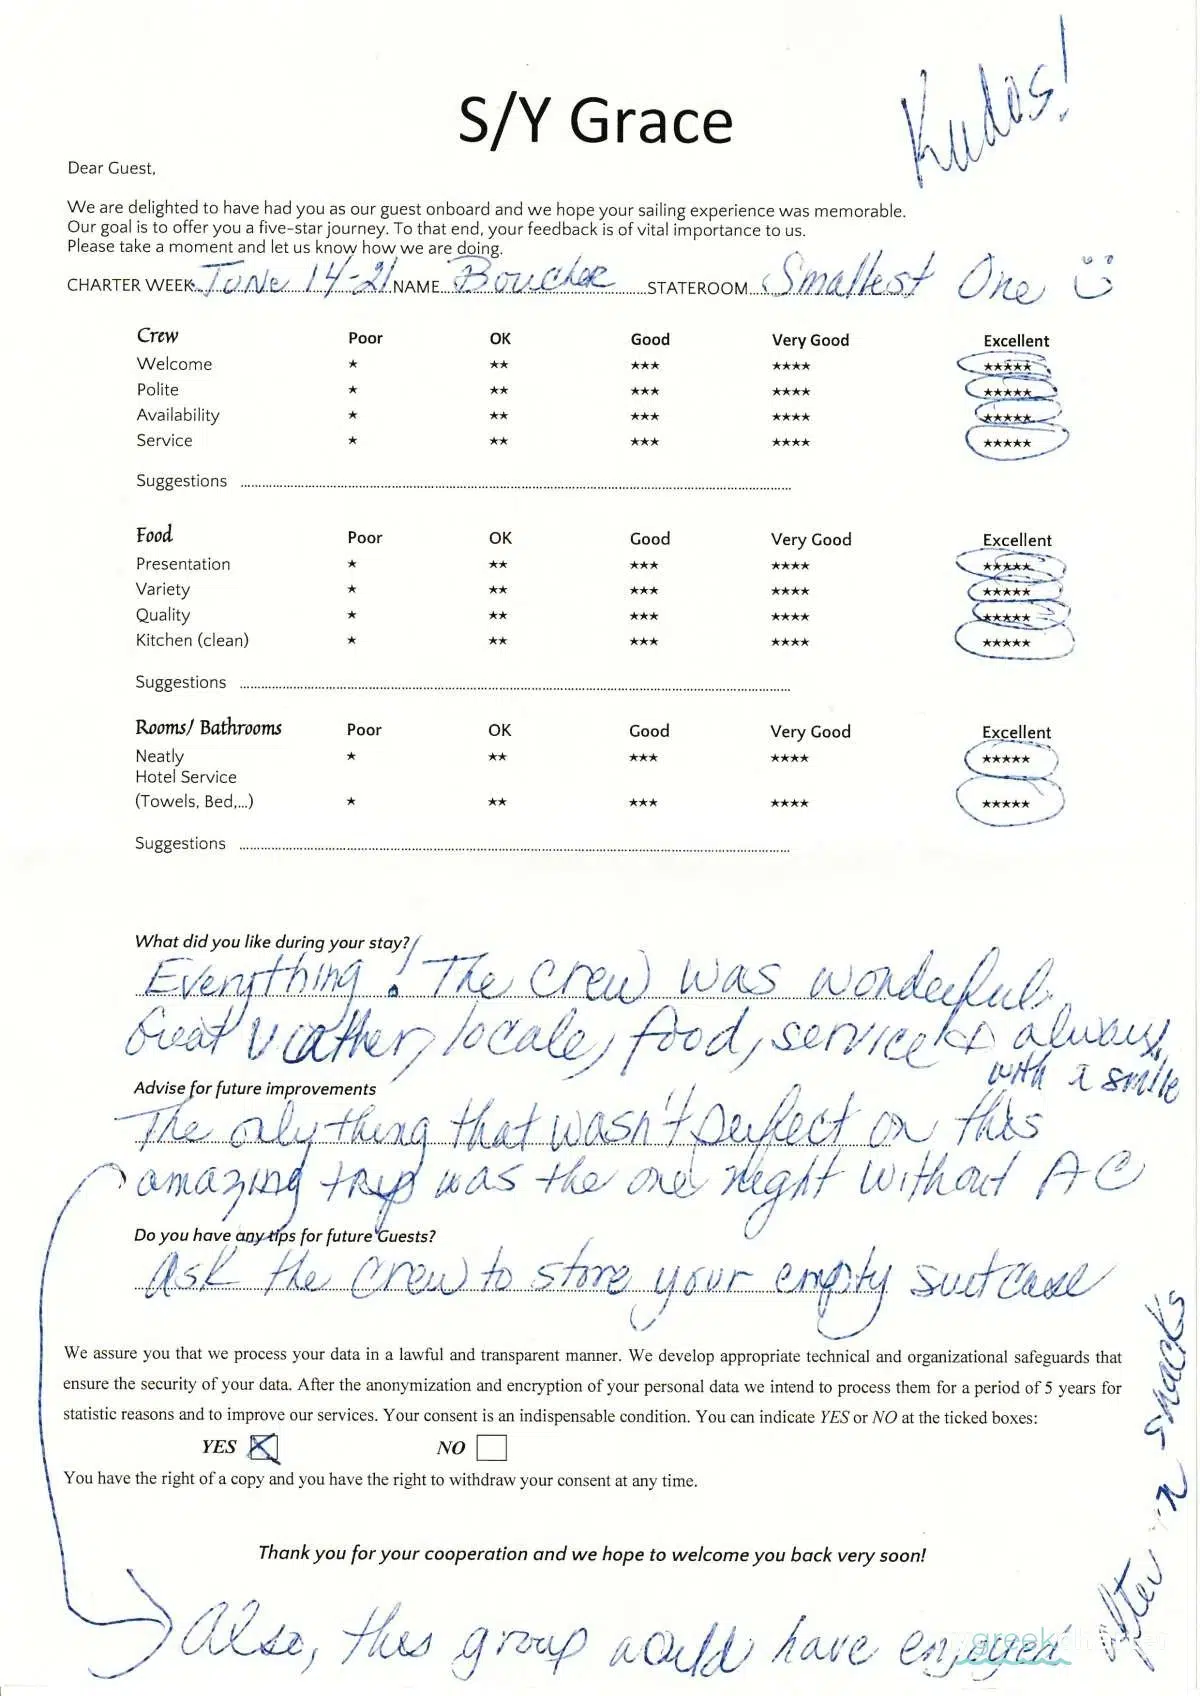 Kudos!
S/Y Grace
Dear Guest,
We are delighted to have had you as our guest onboard and we hope your sailing experience was memorable.
Our goal is to offer you a five-star journey. To that end, your feedback is of vital importance to us.
Please take a moment and let us know how we are doing.
CHARTER WEEK: June 14-21 NAME Boucher STATEROOM Smallest One
Crew Poor OK Good Very Good Excellent
Welcome ★ ★★ ★★★ ★★★★ ★★★★★
Polite ★ ★★ ★★★ ★★★★ ★★★★★
Availability ★ ★★ ★★★ ★★★★ ★★★★★
Service ★ ★★ ★★★ ★★★★ ★★★★★
Suggestions
Food Poor OK Good Very Good Excellent
Presentation ★ ★★ ★★★ ★★★★ ★★★★★
Variety ★ ★★ ★★★ ★★★★ ★★★★★
Quality ★ ★★ ★★★ ★★★★ ★★★★★
Kitchen (clean) ★ ★★ ★★★ ★★★★ ★★★★★
Suggestions
Rooms/ Bathrooms Poor OK Good Very Good Excellent
Neatly ★ ★★ ★★★ ★★★★ ★★★★★
Hotel Service
(Towels, Bed,...) ★ ★★ ★★★ ★★★★ ★★★★★
Suggestions
What did you like during your stay?
Everything! The crew was wonderful.
Great weather, locale, food, service & always
with a smile
Advise for future improvements
The only thing that wasn't perfect on this
amazing trip was the one night without AC
Do you have any tips for future Guests?
Ask the crew to store your empty suitcase
We assure you that we process your data in a lawful and transparent manner. We develop appropriate technical and organizational safeguards that
ensure the security of your data. After the anonymization and encryption of your personal data we intend to process them for a period of 5 years for
statistic reasons and to improve our services. Your consent is an indispensable condition. You can indicate YES or NO at the ticked boxes:
YES NO
You have the right of a copy and you have the right to withdraw your consent at any time.
Thank you for your cooperation and we hope to welcome you back very soon!
Also, this group would have enjoyed
after n snacks